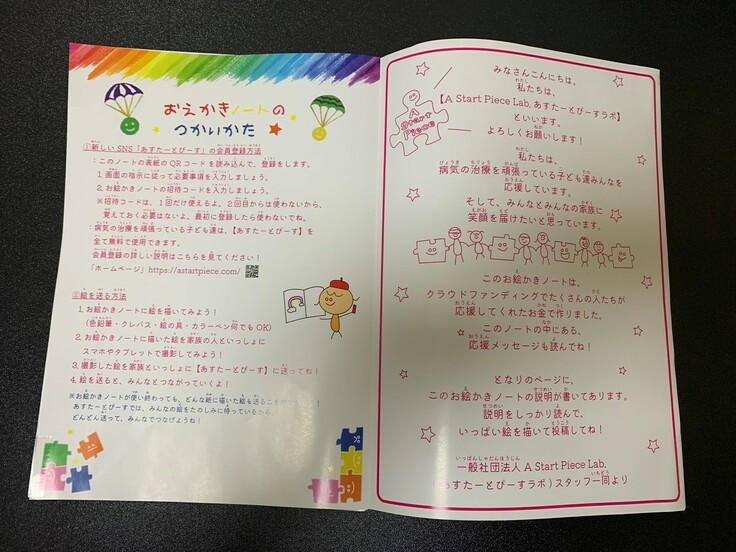 おえかきノートの
つかいかた
①新しいSNS「あすたーとぴーす」の会員登録方法
：このノートの表紙のQRコードを読み込んで、登録をします。
1. 画面の指示に従って必要事項を入力しましょう。
2. お絵かきノートの招待コードを入力しましょう。
※招待コードは、1回だけ使えるよ。2回目からは使わないから、
覚えておく必要はないよ。最初に登録したら使わないでね。
：病気の治療を頑張っている子ども達は、【あすたーとぴーす】を
全て無料で使用できます。
会員登録の詳しい説明はこちらを見てください！
「ホームページ」https://astartpiece.com/
②絵を送る方法
1. お絵かきノートに絵を描いてみよう！
(色鉛筆・クレパス・絵の具・カラーペン何でもOK)
2. お絵かきノートに描いた絵を家族の人といっしょに
スマホやタブレットで撮影してみよう！
3. 撮影した絵を家族といっしょに【あすたーとぴーす】に送ってね！
4. 絵を送ると、みんなとつながっていくよ！
※お絵かきノートが使い終わっても、どんな紙に描いた絵も送ること
あすたーとぴーすでは、みんなの絵をたのしみに待っているから、
どんどん送って、みんなでつなげよう！
みなさんこんにちは。
私たちは、
【A Start Piece Lab. あすたーとぴーすラボ】
といいます。
よろしくお願いします！
A
Start
Piece
私たちは、
病気の治療を頑張っている子ども達みんなを
応援しています。
そして、みんなとみんなの家族に
笑顔を届けたいと思っています。
このお絵かきノートは、
クラウドファンディングでたくさんの人たちが
応援してくれたお金で作りました。
このノートの中にある、
応援メッセージも読んでね！
となりのページに、
このお絵かきノートの説明が書いてあります。
説明をしっかり読んで、
いっぱい絵を描いて投稿してね！
一般社団法人 A Start Piece Lab.
(あすたーとぴーすラボ)スタッフ一同より